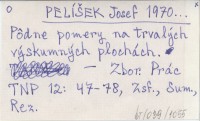 PELÍŠEK Josef 1970...
Pôdne pomery na trvalých
výskumných plochách.
— Zbor. Prác
TNP 12: 47-78, Zsf., Sum,
Rez.